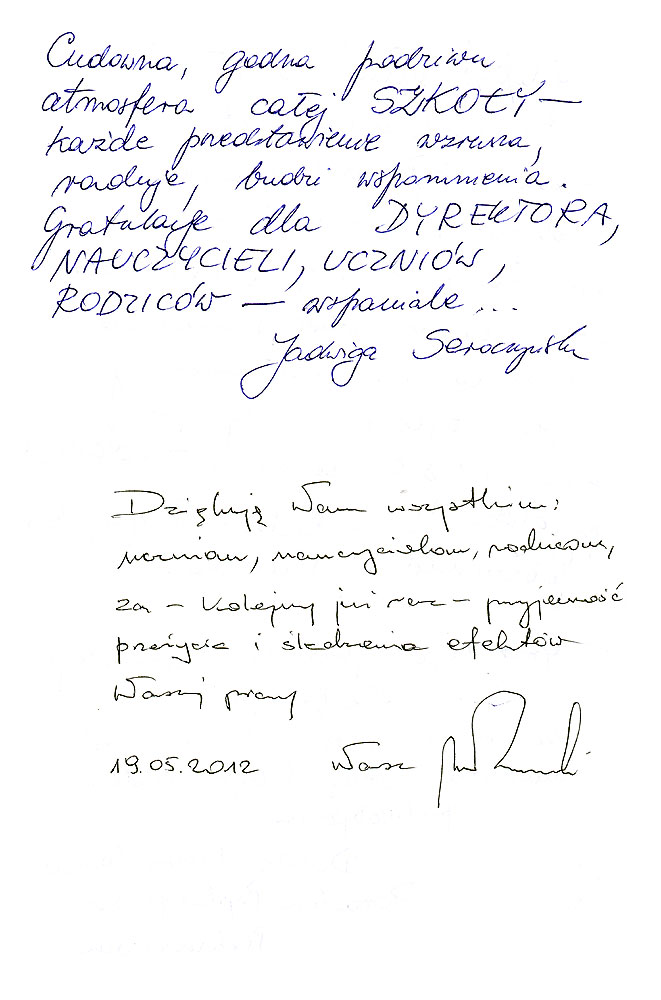 Cudowna, godna podziwu
atmosfera całej SZKOŁY —
każde przedstawienie wzrusza,
raduje, budzi wspomnienia.
Gratulacje dla DYREKTORA,
NAUCZYCIELI, UCZNIÓW,
RODZICÓW — wspaniale...
Jadwiga
Dziękuję Wam wszystkim:
uczniom, nauczycielom, rodzicom,
za – kolejny już raz – przyjemność
przeżycia i śledzenia efektów
Waszej pracy
19.05.2012 Wasz